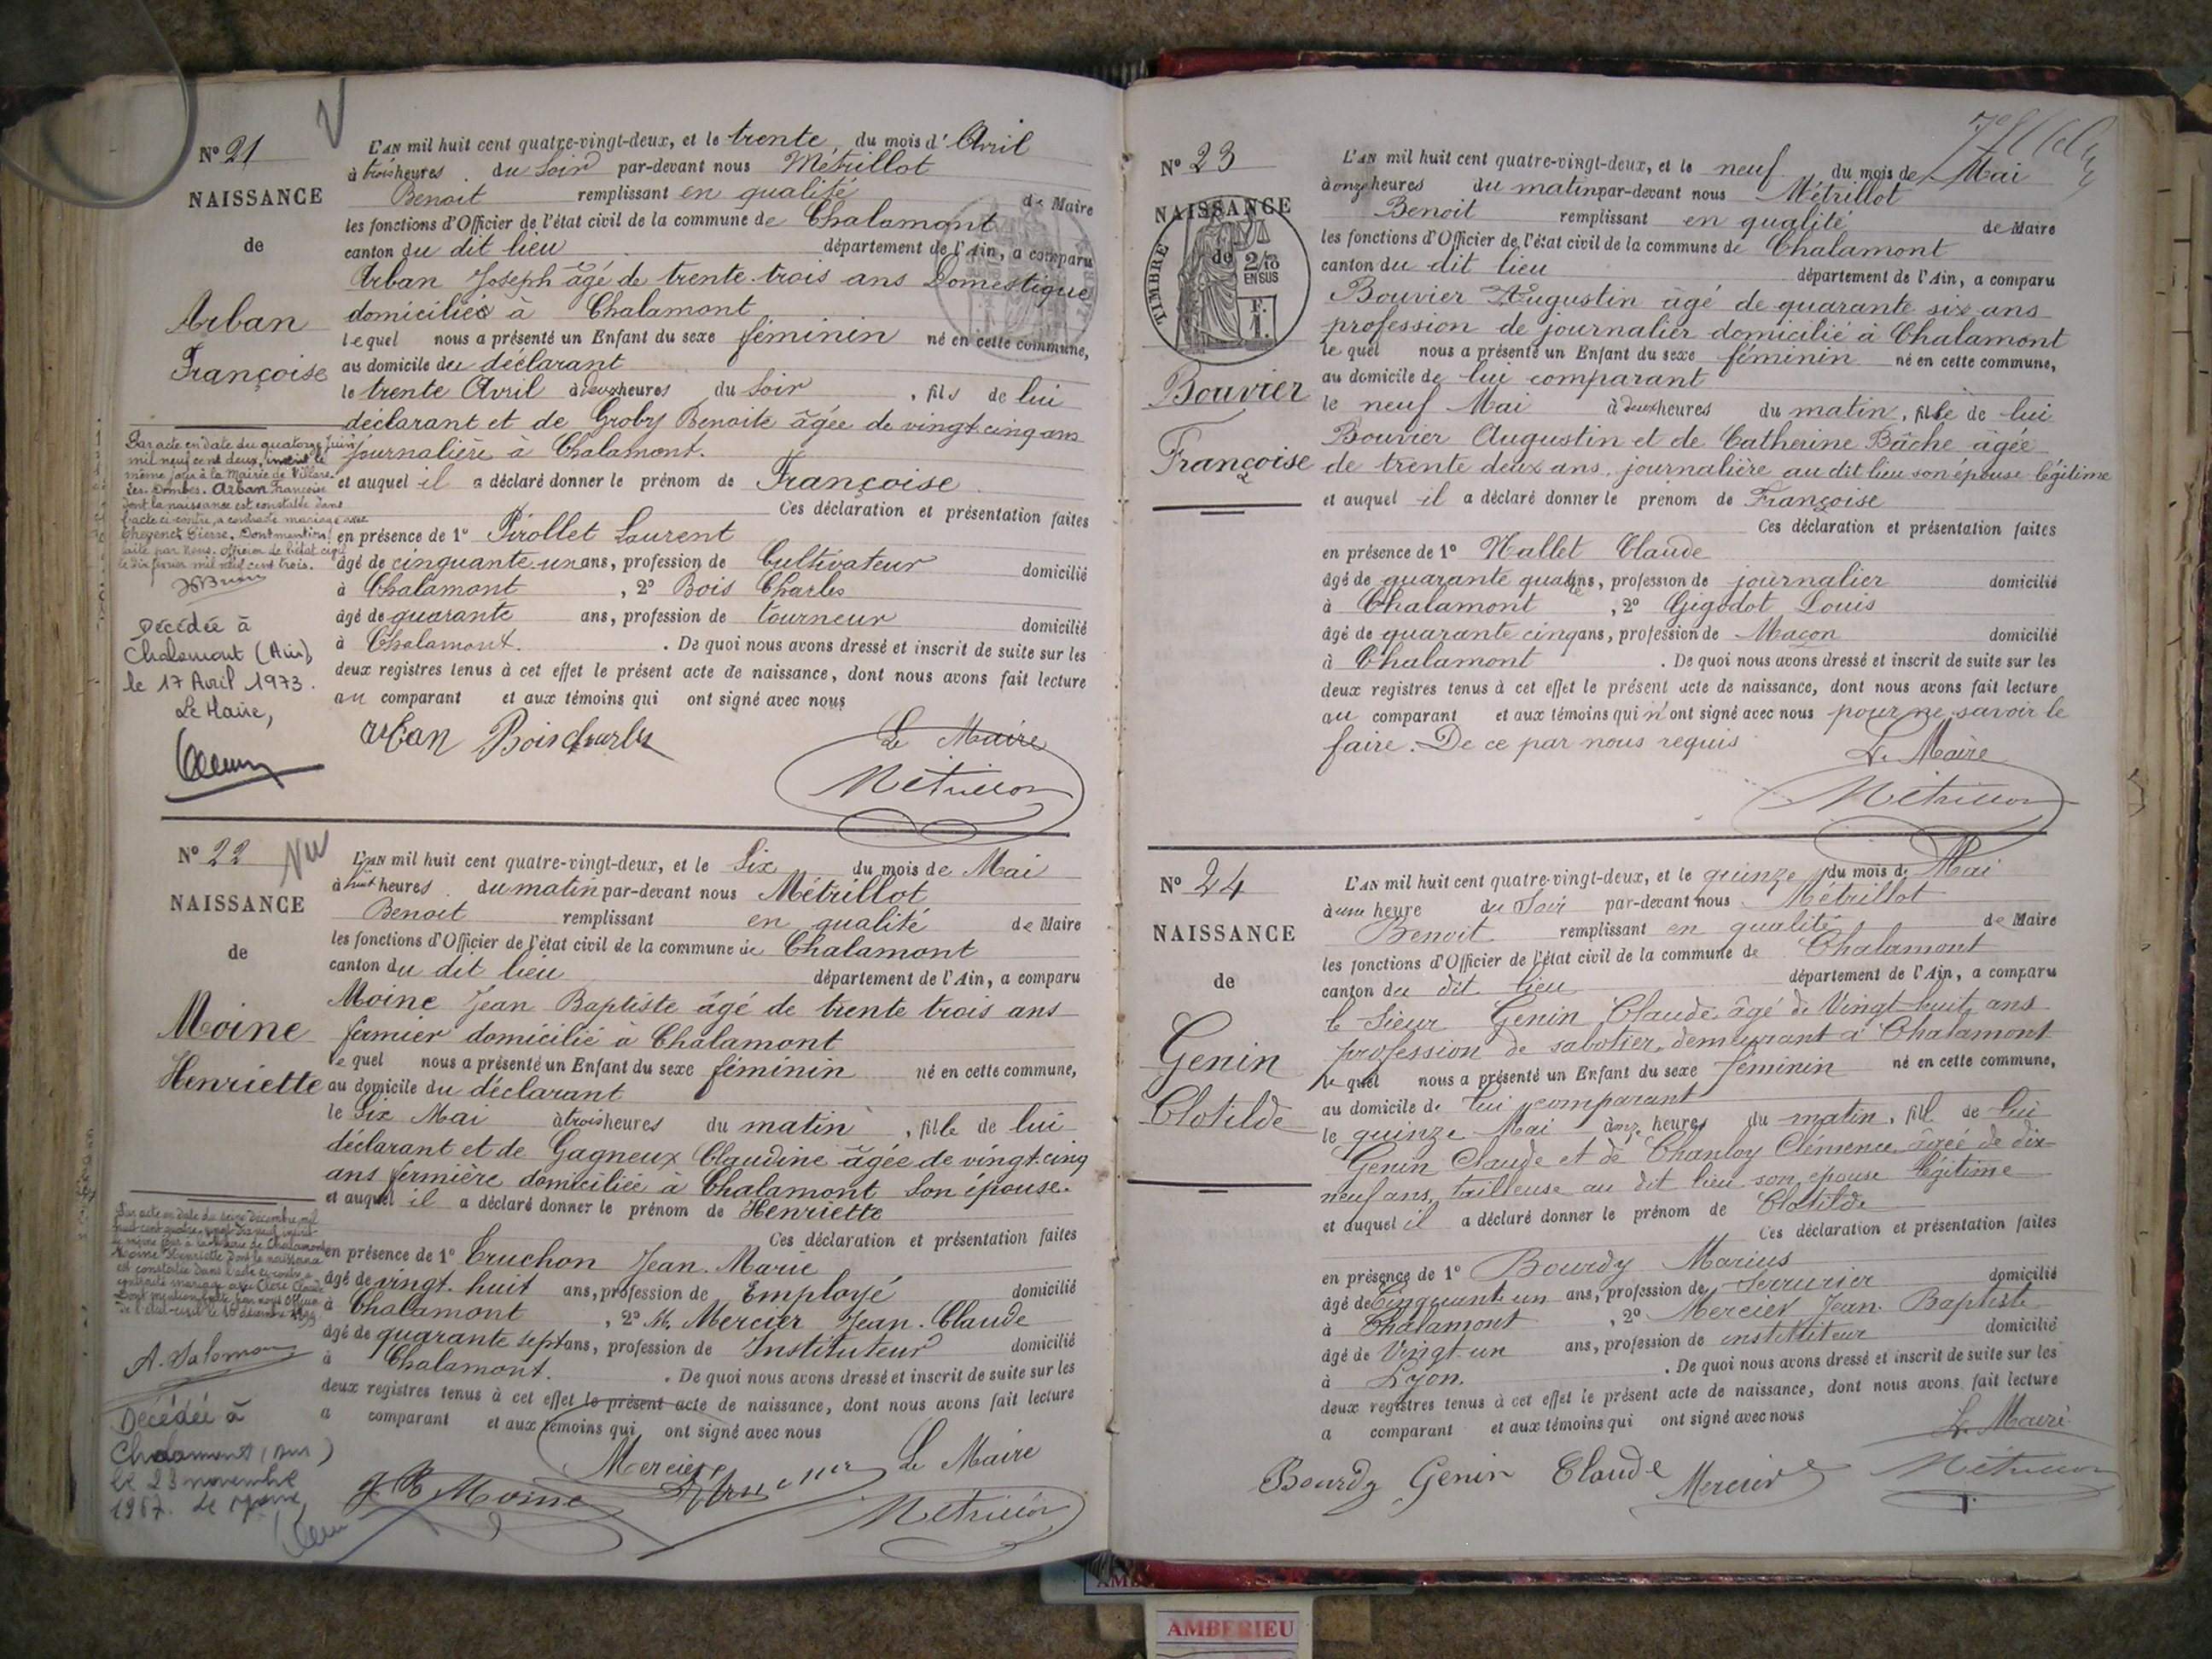 N° 21
NAISSANCE
de
Arban
Françoise
L'AN mil huit cent quatre-vingt-deux, et le trente du mois d'Avril
à trois heures du Soir par-devant nous Métrillot
Benoit remplissant en qualité de Maire
les fonctions d'Officier de l'état civil de la commune de Chalamont
canton du dit lieu département de l'Ain, a comparu
Arban Joseph âgé de trente-trois ans Domestique
domicilié à Chalamont
lequel nous a présenté un Enfant du sexe féminin né en cette commune,
au domicile du déclarant
le trente Avril à deux heures du Soir, fils de lui
déclarant et de Groby Benoite âgée de vingt cinq ans
journalière à Chalamont.
et auquel il a déclaré donner le prénom de Françoise
Ces déclaration et présentation faites
en présence de 1° Pirollet Laurent
âgé de cinquante-un ans, profession de Cultivateur domicilié
à Chalamont, 2° Bois Charles
âgé de quarante ans, profession de tourneur domicilié
à Chalamont. De quoi nous avons dressé et inscrit de suite sur les
deux registres tenus à cet effet le présent acte de naissance, dont nous avons fait lecture
au comparant et aux témoins qui ont signé avec nous
Par acte en date du quatorze juin
mil neuf cent deux, inscrit le
même jour à la Mairie de Villars-
les-Dombes. Arban Françoise
dont la naissance est constatée dans
l'acte ci-contre, a contracté mariage avec
Pierre. Dont mention
faite par Nous. officier de l'état civil
le dix mil neuf cent trois.
Décédée à
Chalamont (Ain)
le 17 Avril 1973.
Le Maire,
Arban Bois Charles Le Maire
Métrillot
N° 22
Vu
NAISSANCE
de
Moine
Henriette
L'AN mil huit cent quatre-vingt-deux, et le Six du mois de Mai
à huit heures du matin par-devant nous Métrillot
Benoit remplissant en qualité de Maire
les fonctions d'Officier de l'état civil de la commune de Chalamont
canton du dit lieu département de l'Ain, a comparu
Moine Jean Baptiste âgé de trente trois ans
fermier domicilié à Chalamont
lequel nous a présenté un Enfant du sexe féminin né en cette commune,
au domicile du déclarant
le Six Mai à trois heures du matin, fille de lui
déclarant et de Gagneux Claudine âgée de vingt-cinq
ans fermière domiciliée à Chalamont son épouse.
et auquel il a déclaré donner le prénom de Henriette
Ces déclaration et présentation faites
en présence de 1° Truchon Jean-Marie
âgé de vingt-huit ans, profession de Employé domicilié
à Chalamont, 2° M. Mercier Jean-Claude
âgé de quarante sept ans, profession de Instituteur domicilié
à Chalamont. De quoi nous avons dressé et inscrit de suite sur les
deux registres tenus à cet effet le présent acte de naissance, dont nous avons fait lecture
a comparant et aux témoins qui ont signé avec nous
Par acte en date du seize Décembre mil
huit cent quatre-vingt-dix neuf inscrit
le même jour à la Mairie de Chalamont
Moine Henriette dont la naissance
est constatée dans l'acte ci-contre a
contracté mariage avec Claude
Dont mention faite par nous Officier
de l'état-civil le décembre 1899
A. Salomon
Décédée à
Chalamont (Ain)
le 23 novembre
1967. Le Maire,
J B Moine Mercier Le Maire
Métrillot
N° 23
NAISSANCE
de
TIMBRE
2/10
EN SUS
Bouvier
Françoise
L'AN mil huit cent quatre-vingt-deux, et le neuf du mois de Mai
à onze heures du matin par-devant nous Métrillot
Benoit remplissant en qualité de Maire
les fonctions d'Officier de l'état civil de la commune de Chalamont
canton du dit lieu département de l'Ain, a comparu
Bouvier Augustin âgé de quarante six ans
profession de journalier domicilié à Chalamont
lequel nous a présenté un Enfant du sexe féminin né en cette commune,
au domicile de lui comparant
le neuf Mai à deux heures du matin, fille de lui
Bouvier Augustin et de Catherine Bâche âgée
de trente deux ans, journalière au dit lieu son épouse légitime
et auquel il a déclaré donner le prénom de Françoise
Ces déclaration et présentation faites
en présence de 1° Nallet Claude
âgé de quarante quatre ans, profession de journalier domicilié
à Chalamont, 2° Gigodot Louis
âgé de quarante cinq ans, profession de Maçon domicilié
à Chalamont. De quoi nous avons dressé et inscrit de suite sur les
deux registres tenus à cet effet le présent acte de naissance, dont nous avons fait lecture
au comparant et aux témoins qui n'ont signé avec nous pour ne savoir le
faire. De ce par nous requis
Le Maire
Métrillot
N° 24
NAISSANCE
de
Genin
Clotilde
L'AN mil huit cent quatre-vingt-deux, et le quinze du mois de Mai
à une heure du Soir par-devant nous Métrillot
Benoit remplissant en qualité de Maire
les fonctions d'Officier de l'état civil de la commune de Chalamont
canton du dit lieu département de l'Ain, a comparu
le Sieur Genin Claude, âgé de Vingt-huit ans
profession de sabotier, demeurant à Chalamont
lequel nous a présenté un Enfant du sexe féminin né en cette commune,
au domicile de lui comparant
le quinze Mai à onze heures du matin, fil de lui
Genin Claude et de Chanloy Clémence, âgée de dix-
neuf ans, tailleuse au dit lieu son épouse légitime
et auquel il a déclaré donner le prénom de Clotilde
Ces déclaration et présentation faites
en présence de 1° Bourdy Marius
âgé de Cinquante-un ans, profession de Serrurier domicilié
à Chalamont, 2° Mercier Jean-Baptiste
âgé de Vingt-un ans, profession de instituteur domicilié
à Lyon. De quoi nous avons dressé et inscrit de suite sur les
deux registres tenus à cet effet le présent acte de naissance, dont nous avons fait lecture
a comparant et aux témoins qui ont signé avec nous
Le Maire
Bourdy Genin Claude Mercier Métrillot
AMBERIEU